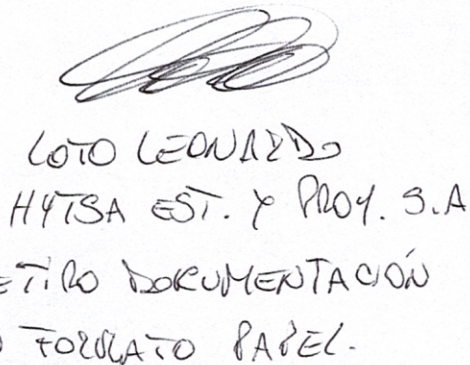 LOTO LEONARDO
HYTSA EST. Y PROY. S.A
ETIRO DOCUMENTACIÓN
FORMATO PAPEL.